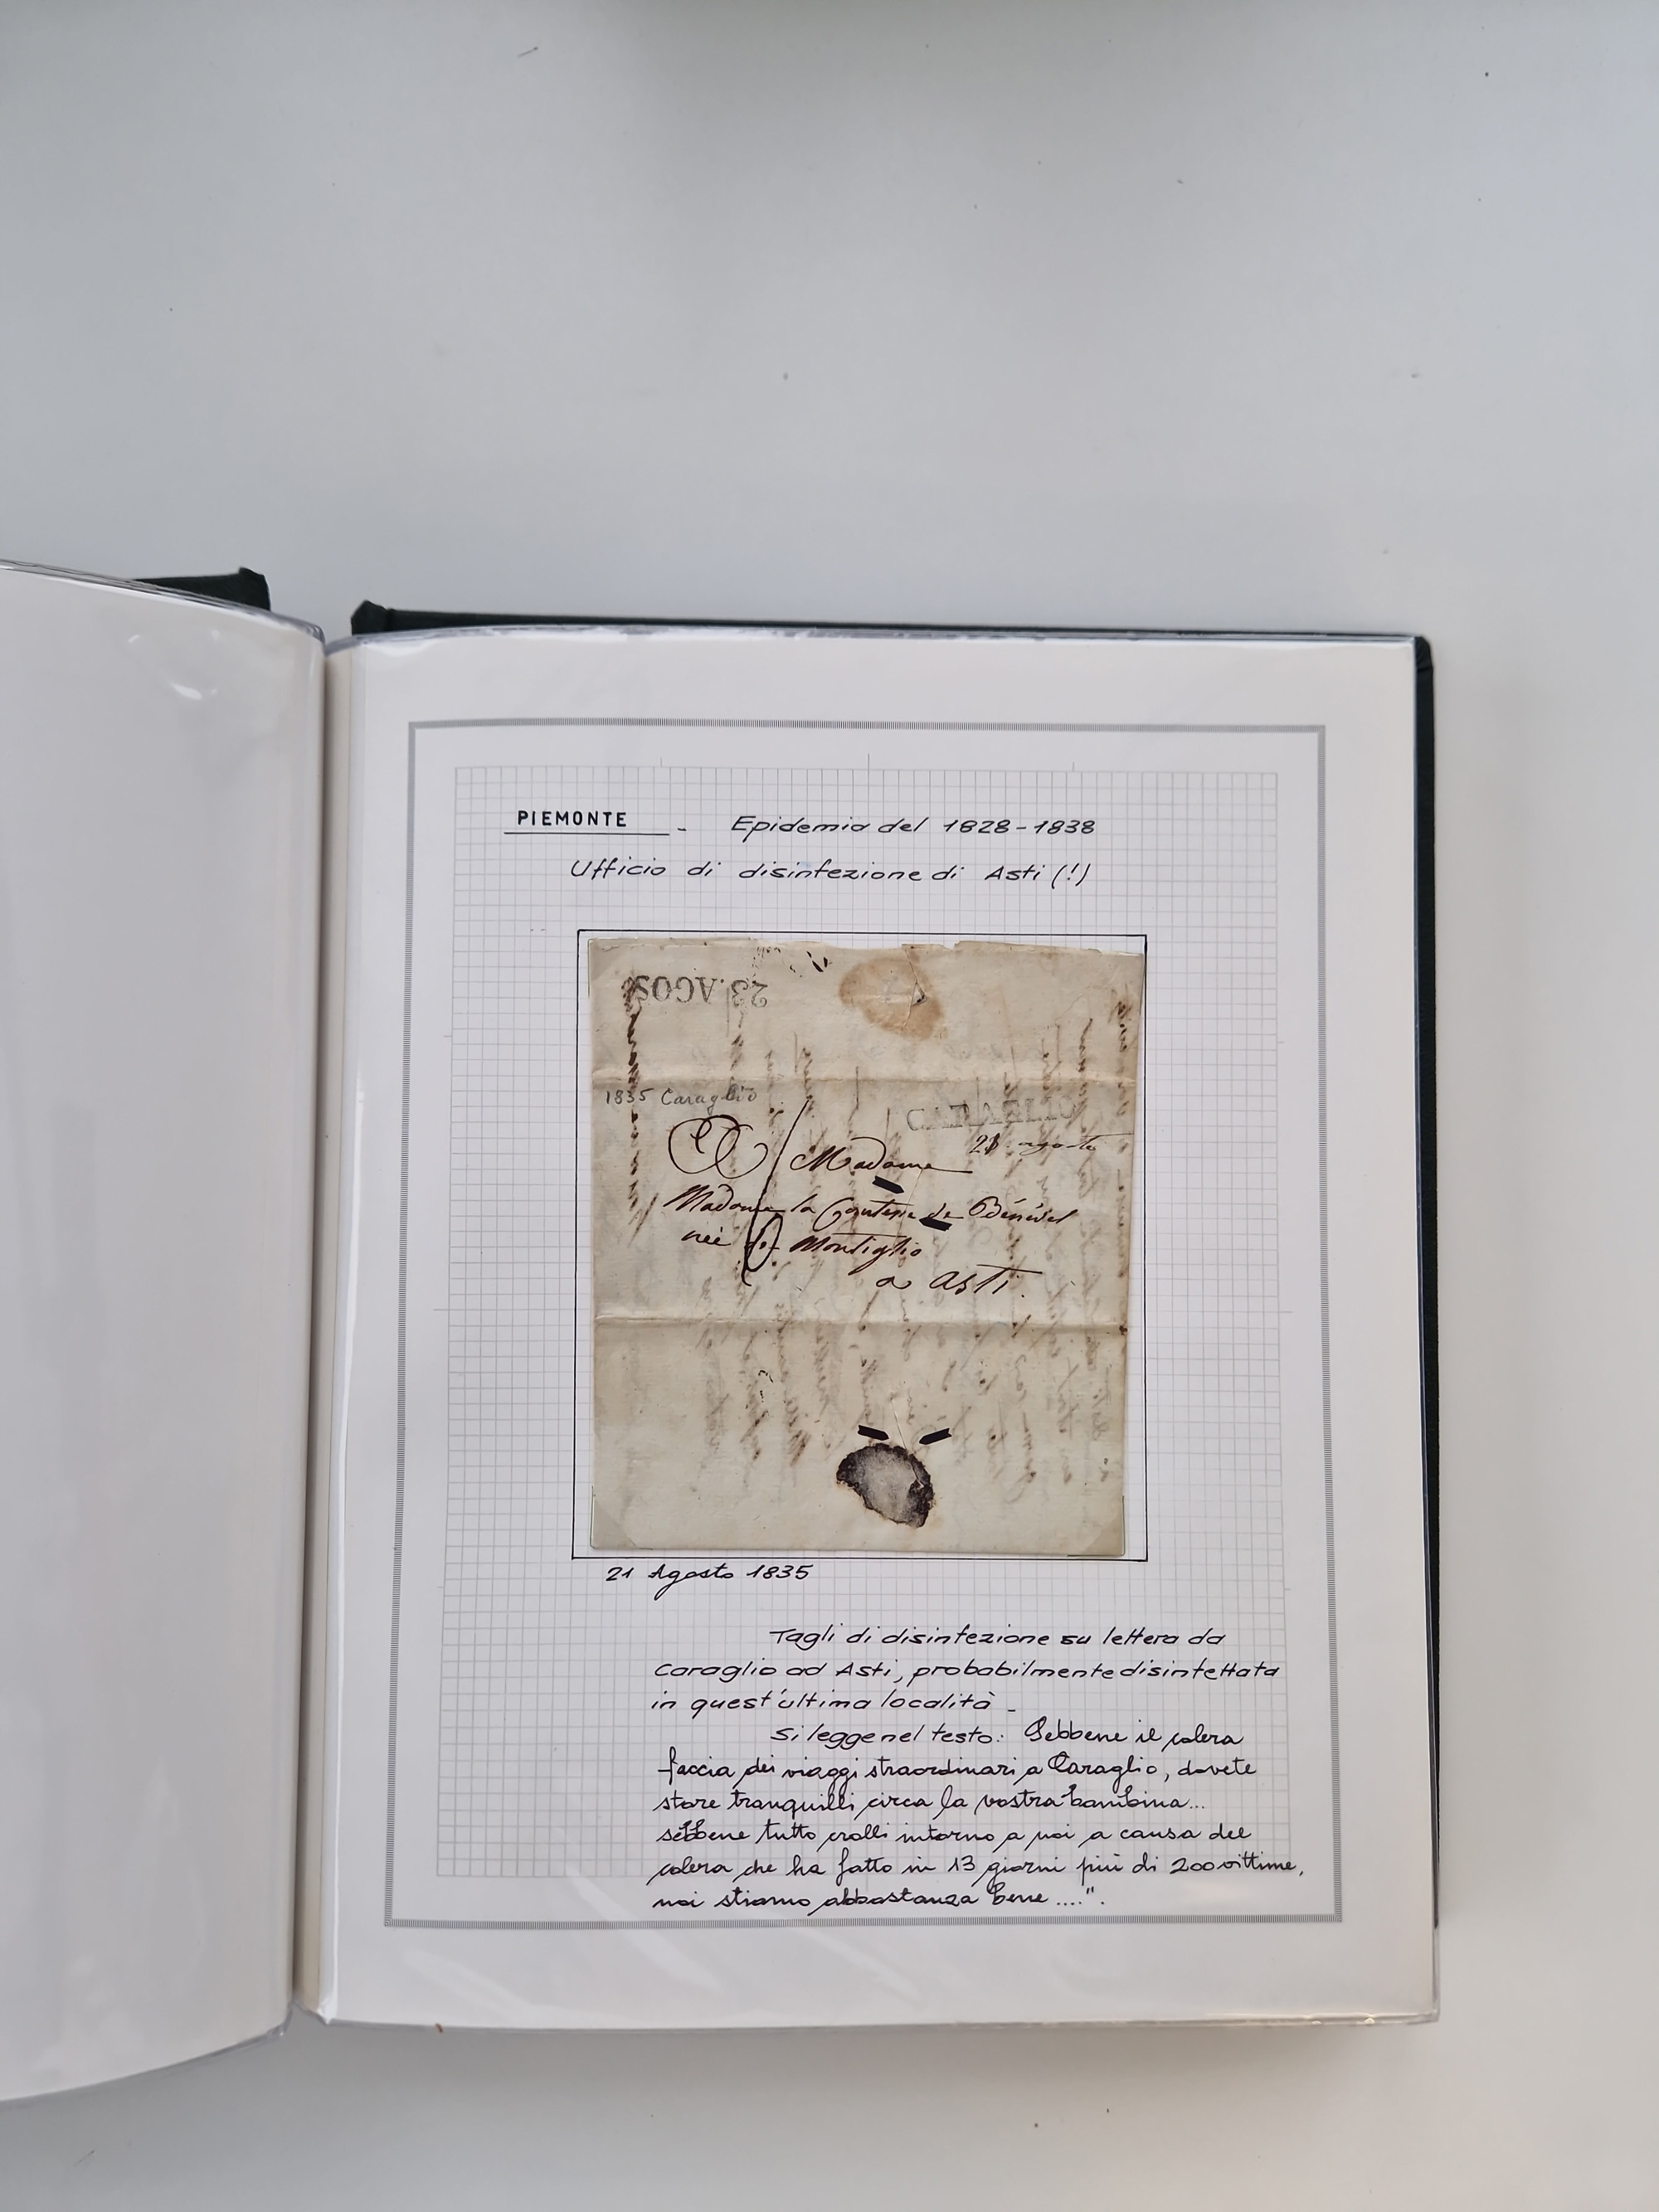 PIEMONTE - Epidemia del 1828-1838
Ufficio di disinfezione di Asti (!)
23. AGOS.
1835 Caraglio
CARAGLIO
21 agosto
Madame
Madame la Comtesse de Bénével
née de Montiglio
a Asti.
21 Agosto 1835
Tagli di disinfezione su lettera da
Caraglio ad Asti, probabilmente disinfettata
in quest'ultima località -
Si legge nel testo: Sebbene il colera
faccia dei viaggi straordinari a Caraglio, dovete
stare tranquilli circa la vostra bambina...
sebbene tutto crolli intorno a noi a causa del
colera che ha fatto in 13 giorni più di 200 vittime,
noi stiamo abbastanza bene ....".